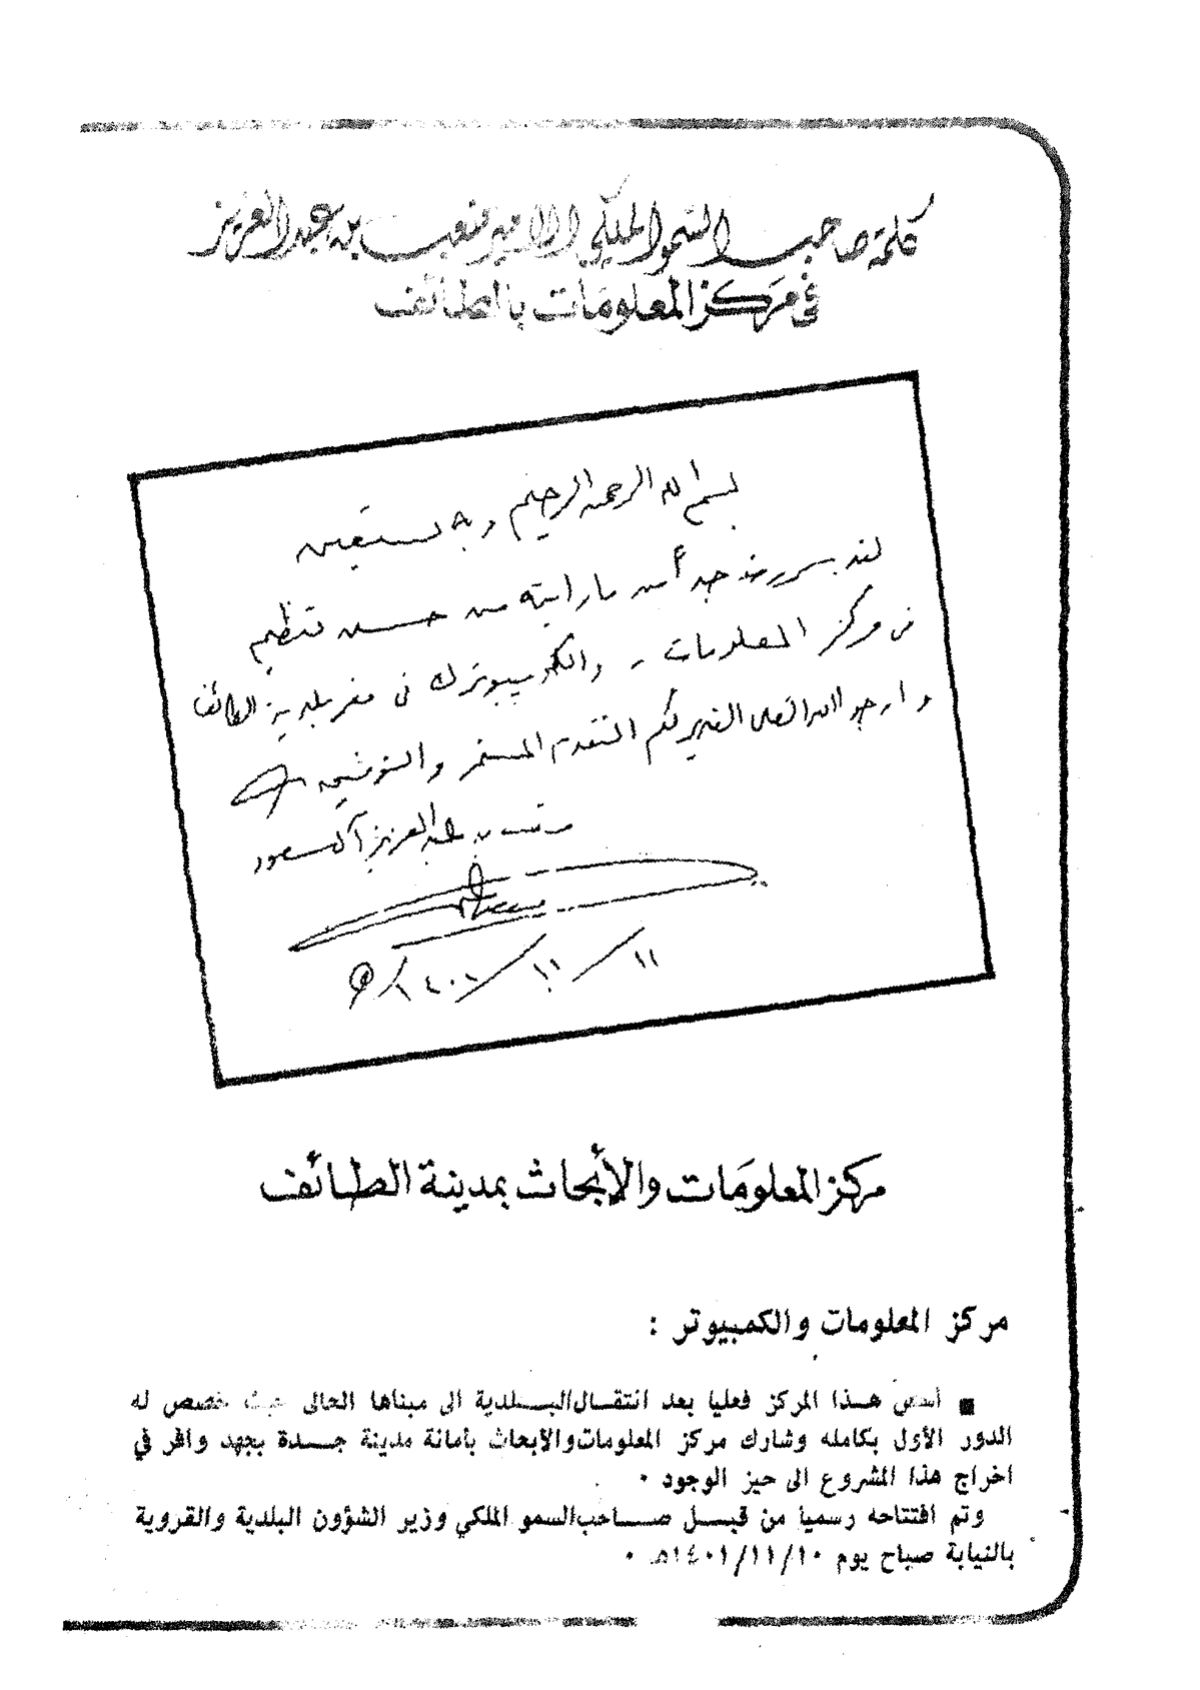 كلمة صاحب السمو الملكي الأمير متعب بن عبد العزيز
في مركز المعلومات بالطائف
بسم الله الرحمن الرحيم وبه نستعين
لقد سررت جدا من ما رأيته من حسن تنظيم
في مركز المعلومات - والكمبيوتر في مقر بلدية الطائف
وارجو الله العلي القدير لكم التقدم المستمر والتوفيق
متعب بن عبد العزيز آل سعود
١١/١١/١٤٠١ هـ
مركز المعلومات والأبحاث بمدينة الطائف
مركز المعلومات والكمبيوتر :
■ هـذا المركز فعليا بعد انتقـال البـلدية الى مبناها الحالى حيث خصص له
الدور الأول بكامله وشارك مركز المعلومات والابحاث بأمانة مدينة جـدة بجهد وافر في
اخراج هذا المشروع الى حيز الوجود ٠
وتم افتتاحه رسميا من قبـل صـاحب السمو الملكي وزير الشؤون البلدية والقروية
بالنيابة صباح يوم ١٤٠١/١١/١٠هـ ٠